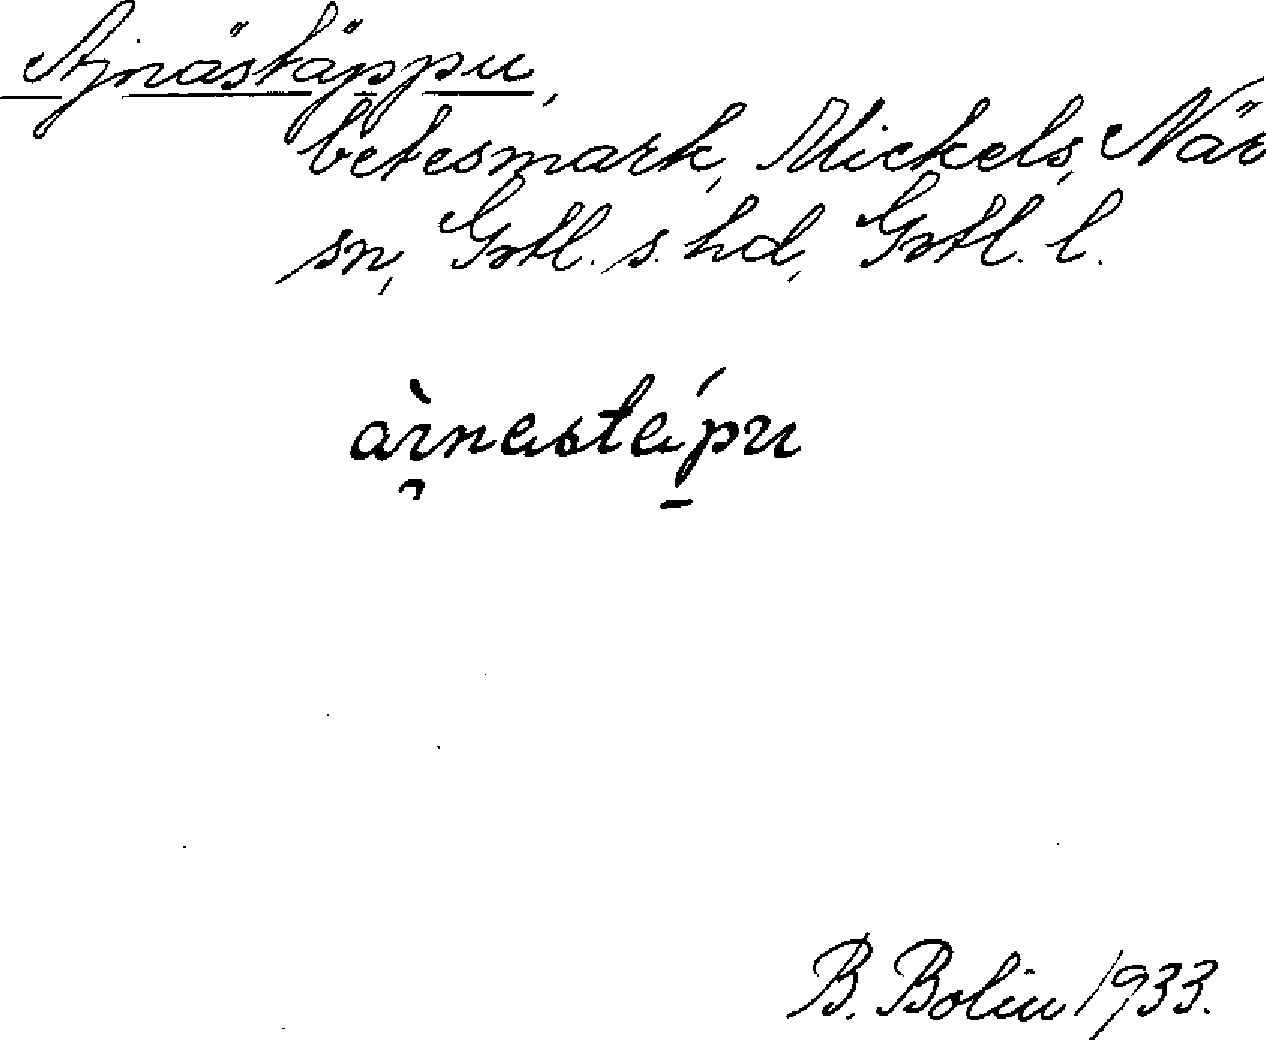 Ajnästäppu,
betesmark, Mickels, När
sn, Gotl. s. hd, Gotl. l.
àı̯nestépu
B. Bolin 1933.